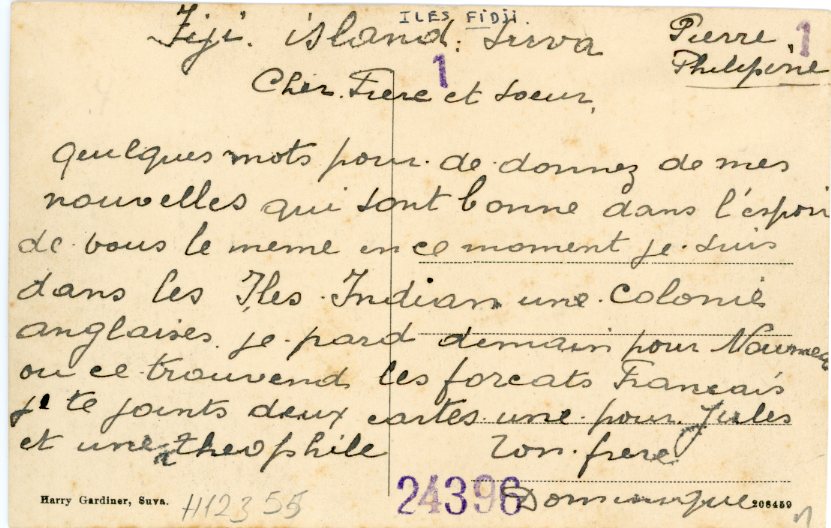 ILES FIDJI.
Fiji. island: Suva
Pierre 1
Philipine
1
Cher. Frere et soeur,
quelques mots pour. de. donnez de mes
nouvelles qui sont bonne dans l'espoir
de. vous le meme en ce moment je. suis
dans les Iles. Indian une. Colonie
anglaises. je. pard demain pour Noumea
ou ce trouvend les forcats Francais
je te joints deux cartes une. pour. Jules
et une a theophile Ton. frere
Dominique
Harry Gardiner, Suva. H12355 24396 206459